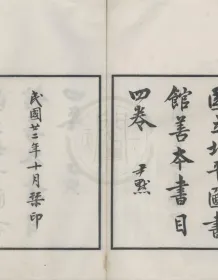 國立北平圖書
館善本書目
四卷 尹默
民國廿二年十月槧印